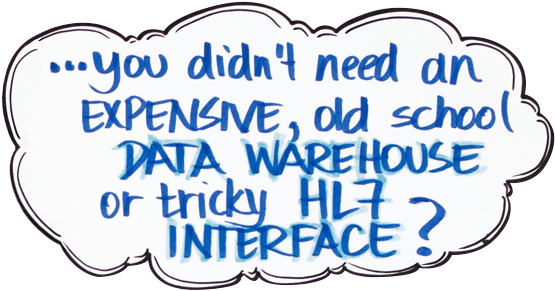 ...you didn't need an
EXPENSIVE, old school
DATA WAREHOUSE
or tricky HL7
INTERFACE?